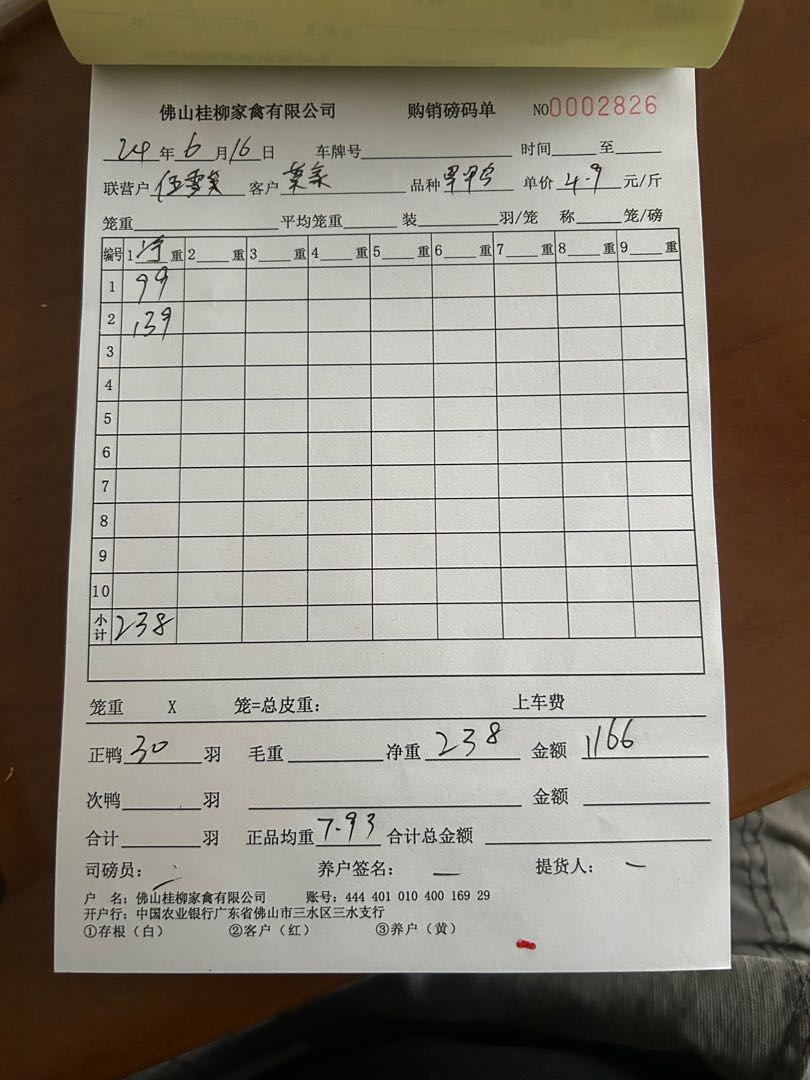 佛山桂柳家禽有限公司 购销磅码单 NO0002826
24年6月16日 车牌号 时间 至
联营户 客户 品种 单价 4.9 元/斤
笼重 平均笼重 装 羽/笼 称 笼/磅
编号 1 净 重 2 重 3 重 4 重 5 重 6 重 7 重 8 重 9 重
1 99
2 139
3
4
5
6
7
8
9
10
小计 238
笼重 X 笼=总皮重： 上车费
正鸭 30 羽 毛重 净重 238 金额 1166
次鸭 羽 金额
合计 羽 正品均重 7.93 合计总金额
司磅员： 养户签名： 提货人：
户 名：佛山桂柳家禽有限公司 账号：444 401 010 400 169 29
开户行：中国农业银行广东省佛山市三水区三水支行
①存根（白） ②客户（红） ③养户（黄）